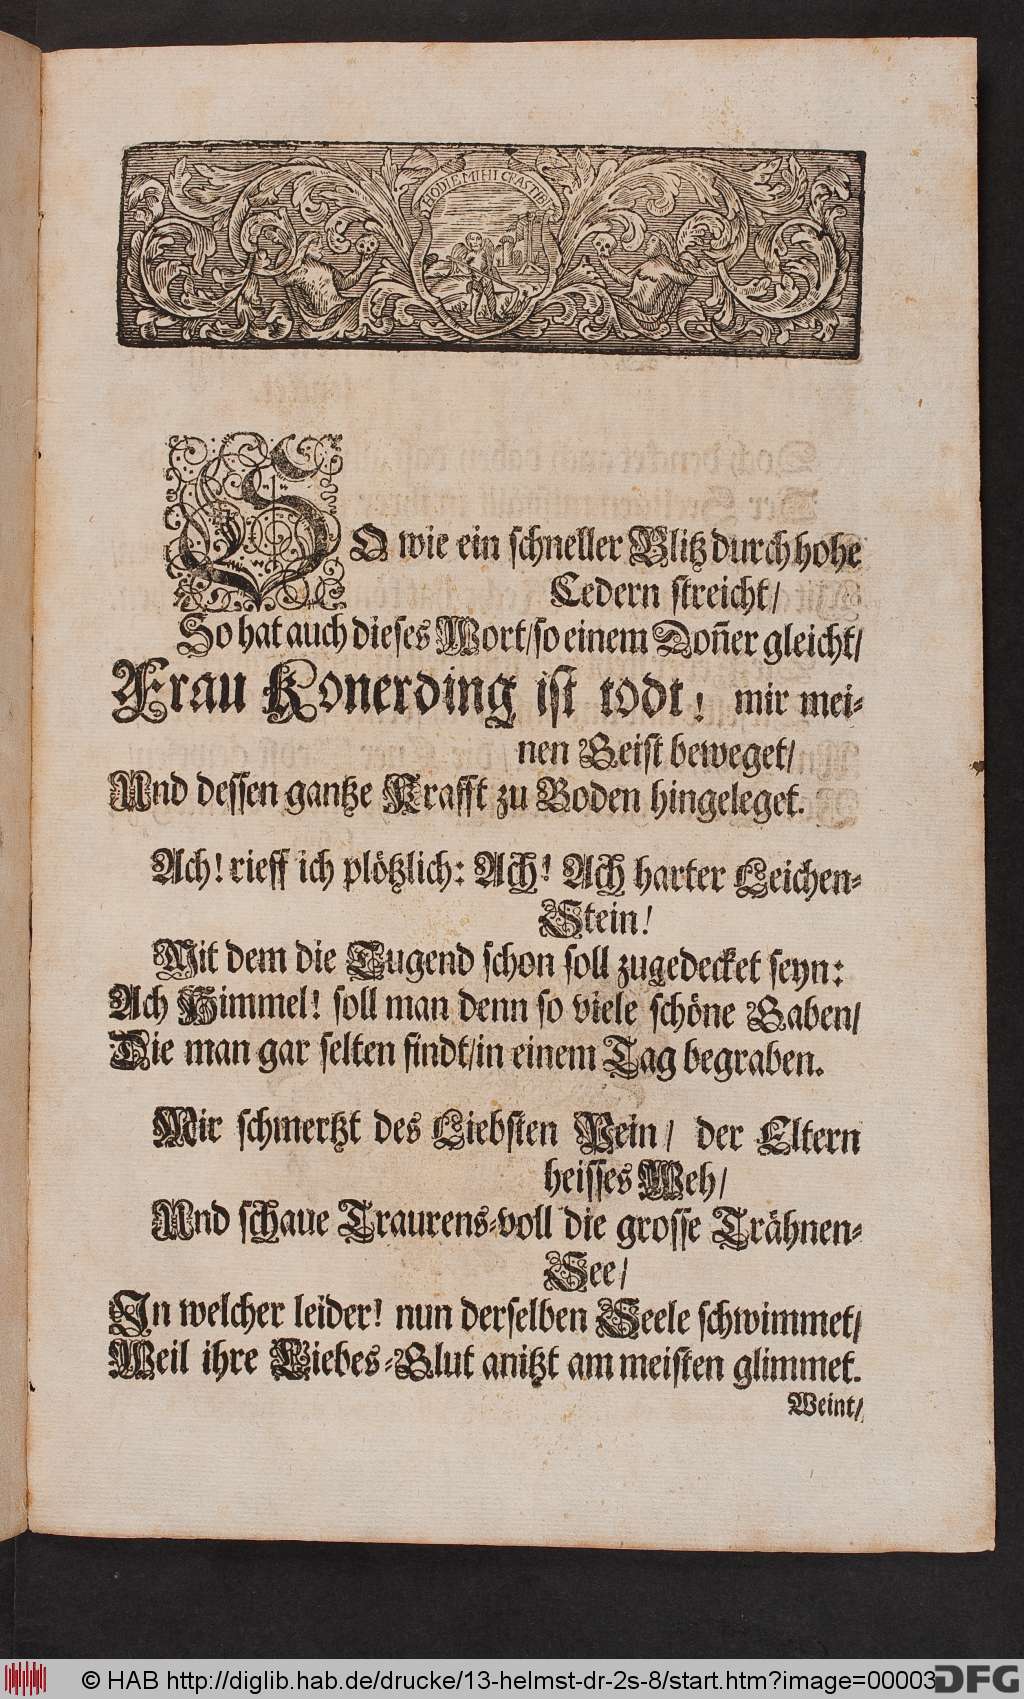 HODIE MIHI CRAS TIBI
SO wie ein schneller Blitz durch hohe
Cedern streicht/
So hat auch dieses Wort/so einem Don̄er gleicht/
Frau Konerding ist todt! mir mei-
nen Geist beweget/
Und dessen gantze Krafft zu Boden hingeleget.
Ach! rieff ich plötzlich: Ach! Ach harter Leichen-
Stein!
Mit dem die Tugend schon soll zugedecket seyn:
Ach Himmel! soll man denn so viele schöne Gaben/
Die man gar selten findt/in einem Tag begraben.
Mir schmertzt des Liebsten Pein/ der Eltern
heisses Weh/
Und schaue Traurens-voll die grosse Trähnen-
See/
In welcher leider! nun derselben Seele schwimmet/
Weil ihre Liebes-Glut anitzt am meisten glimmet.
Weint/
© HAB http://diglib.hab.de/drucke/13-helmst-dr-2s-8/start.htm?image=00003
DFG